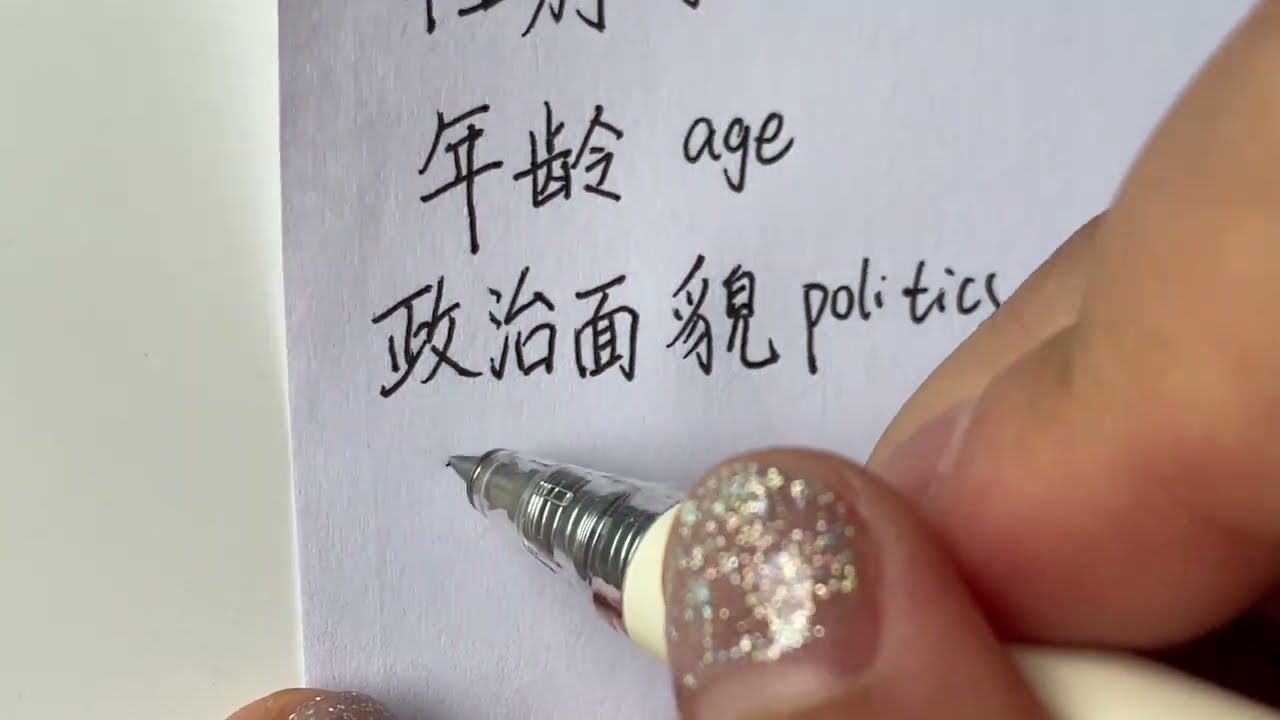 性别
年龄 age
政治面貌 politics